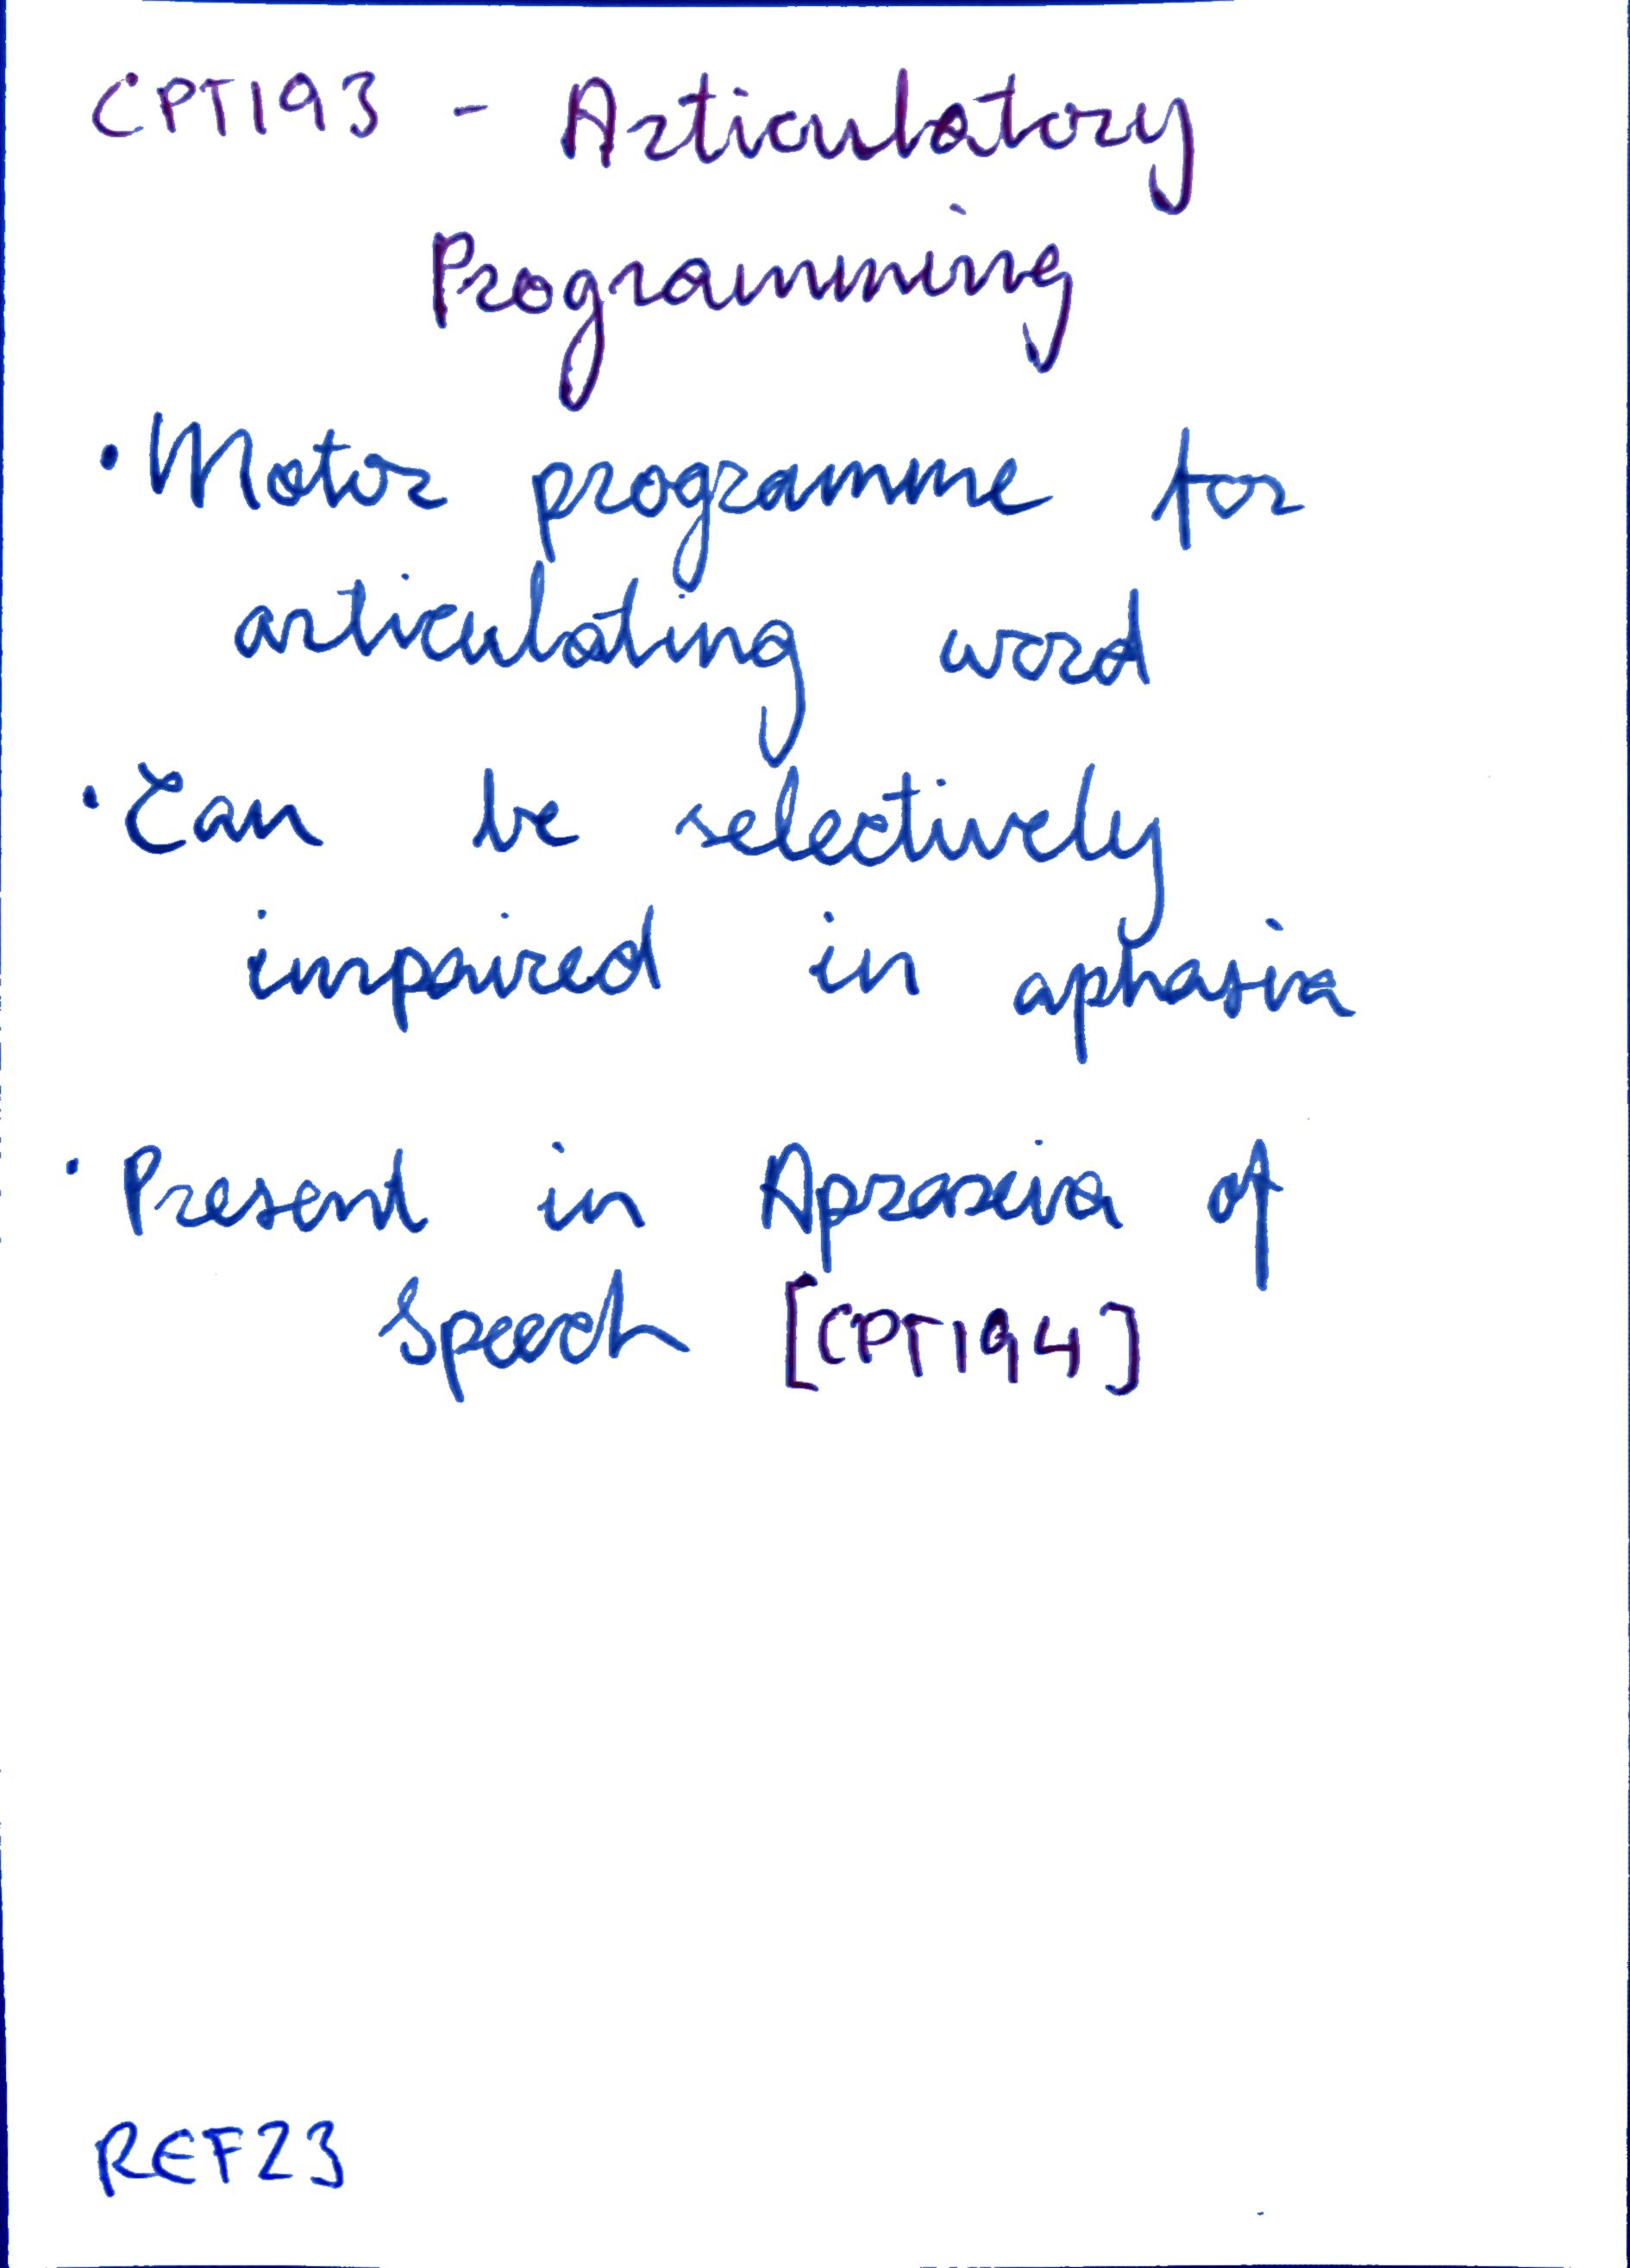 CPT193 - Articulatory
Programming
• Motor programme for
articulating word
• Can be selectively
impaired in aphasia
• Present in Apraxia of
Speech [CPT194]
REF23